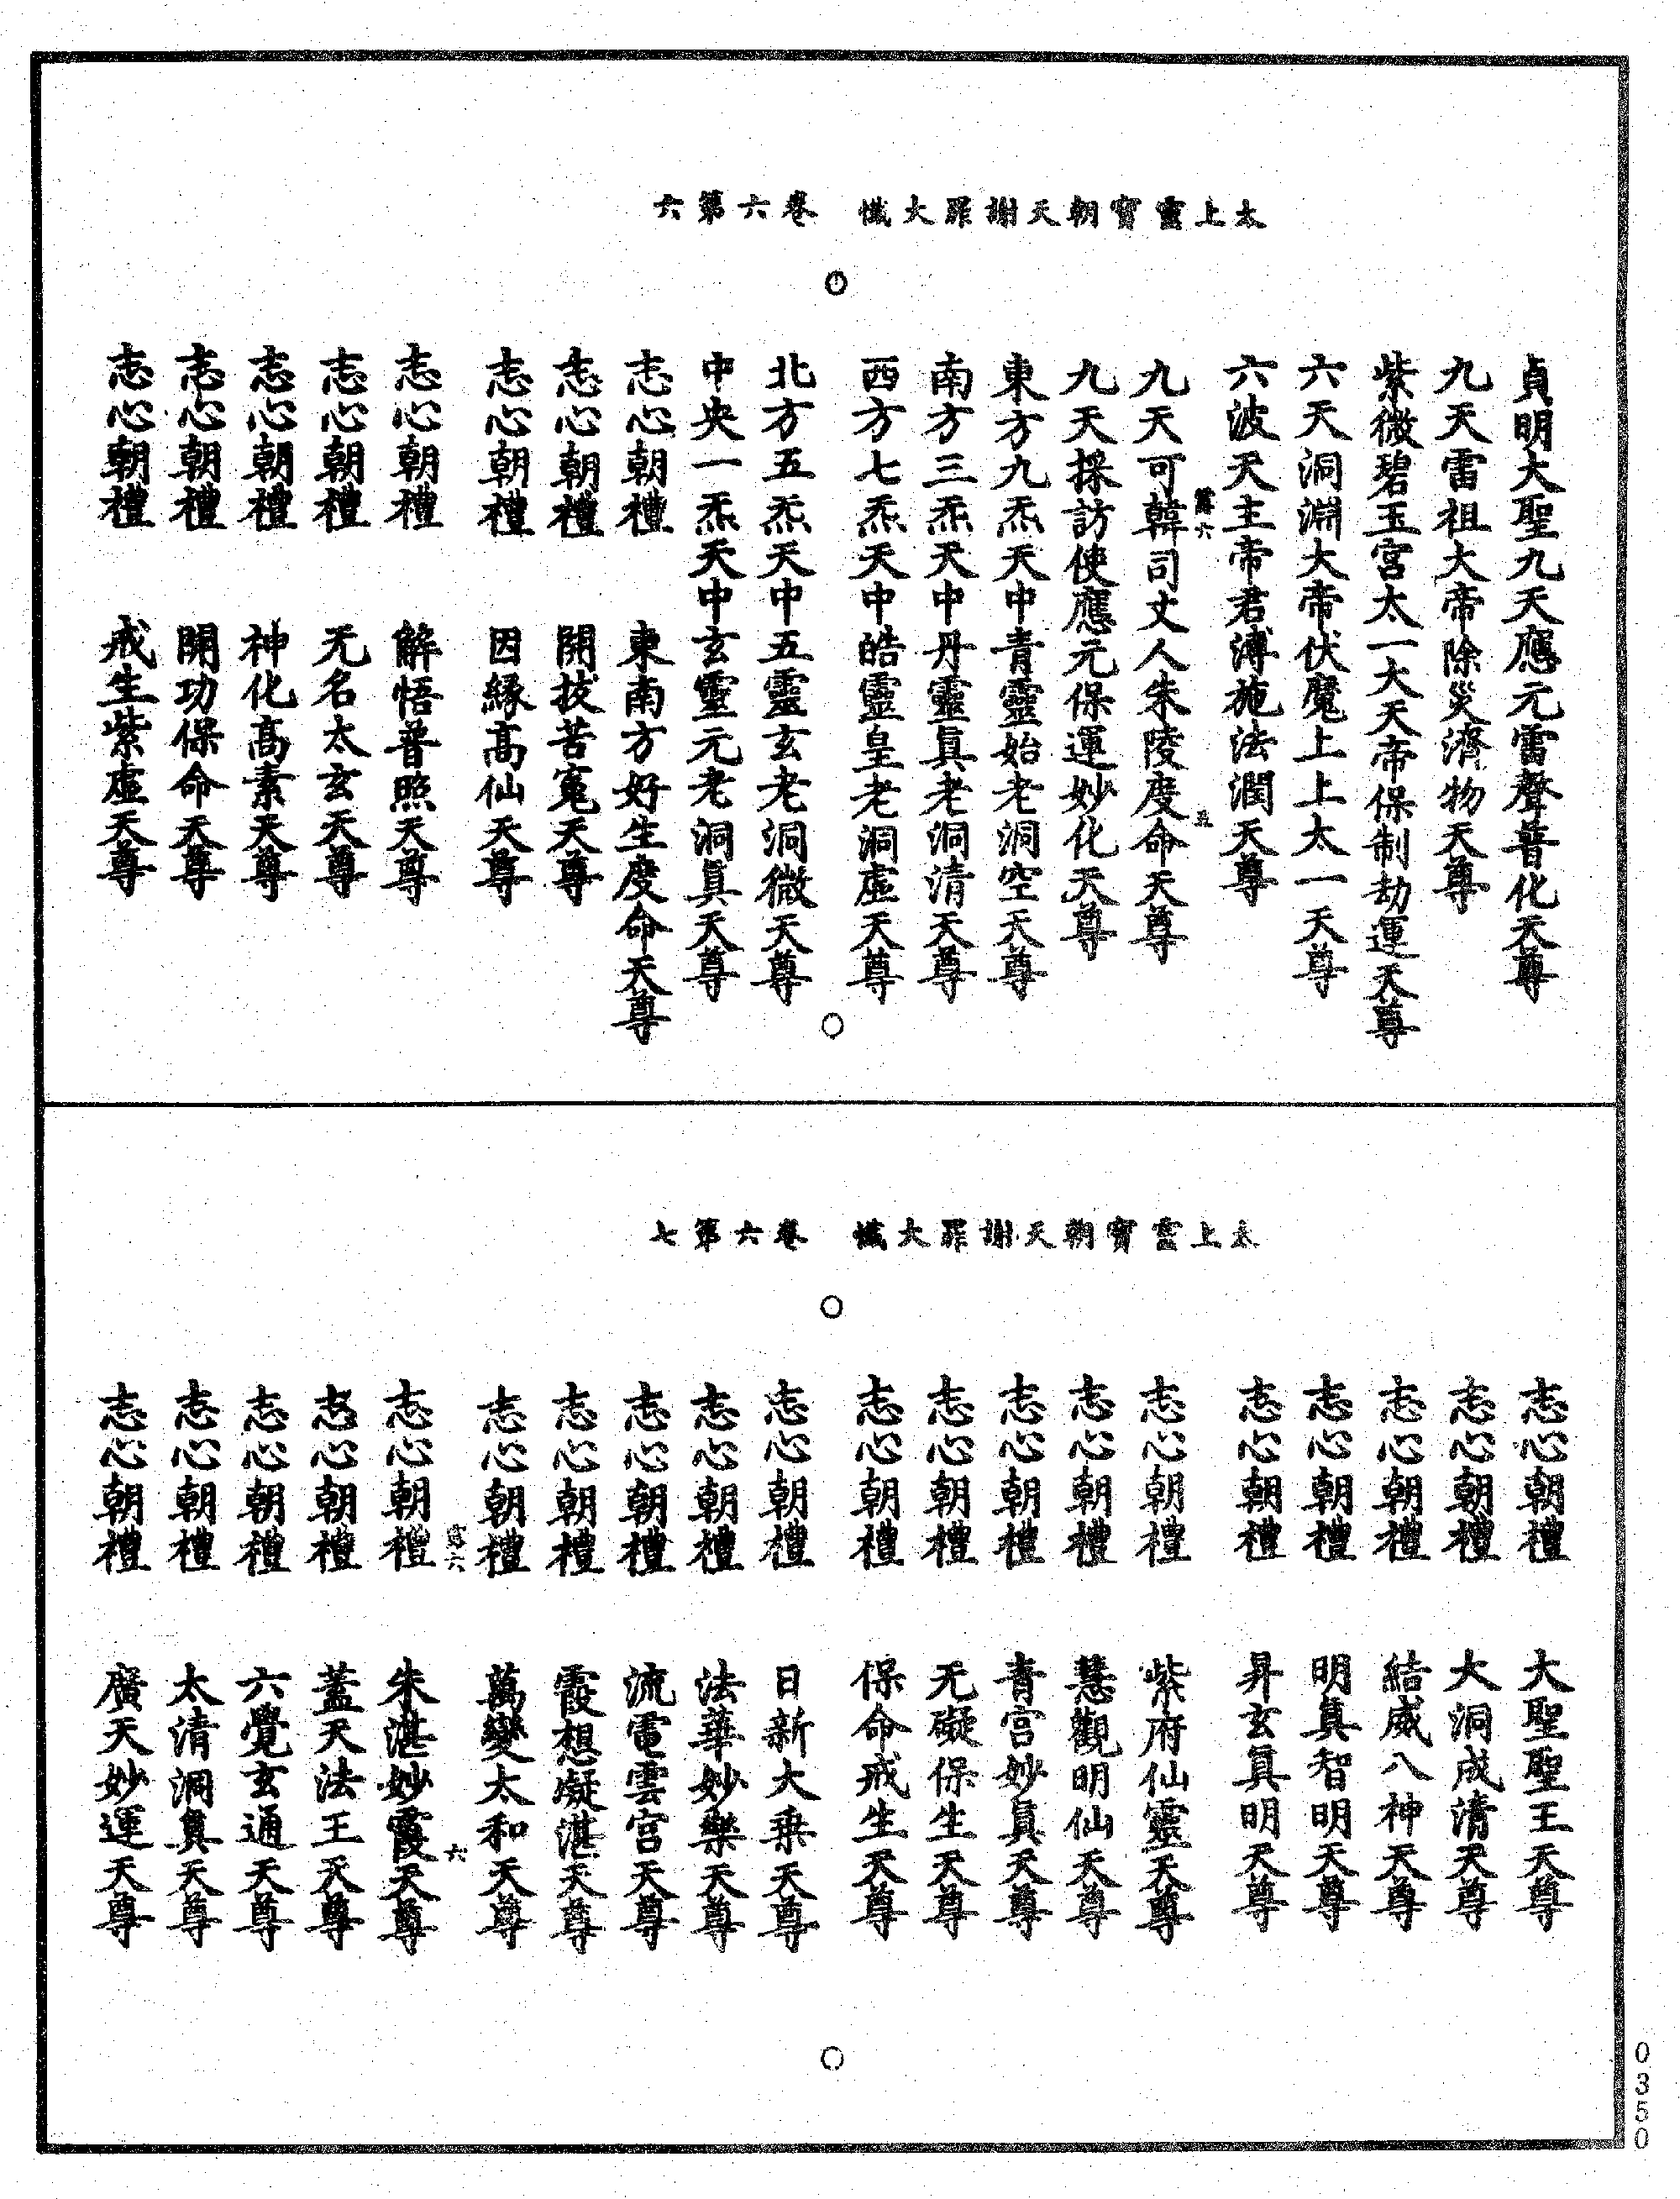 太上靈寶朝天謝罪大懺　卷六第六
貞明大聖九天應元雷聲普化天尊
九天雷祖大帝除災濟物天尊
紫微碧玉宮太一大天帝保制劫運天尊
六天洞淵大帝伏魔上上太一天尊
六波天主帝君溥施法潤天尊
九天可韓司丈人朱陵度命天尊
九天採訪使應元保運妙化天尊
東方九炁天中青靈始老洞空天尊
南方三炁天中丹靈眞老洞清天尊
西方七炁天中皓靈皇老洞虛天尊
北方五炁天中五靈玄老洞微天尊
中央一炁天中玄靈元老洞眞天尊
志心朝禮　東南方好生度命天尊
志心朝禮　開技苦冤天尊
志心朝禮　因緣高仙天尊
志心朝禮　解悟普照天尊
志心朝禮　无名太玄天尊
志心朝禮　神化高素天尊
志心朝禮　開功保命天尊
志心朝禮　戒生紫虛天尊
太上靈寶朝天謝罪大懺　卷六第七
志心朝禮　大聖聖王天尊
志心朝禮　大洞成清天尊
志心朝禮　結威八神天尊
志心朝禮　明眞智明天尊
志心朝禮　昇玄眞明天尊
志心朝禮　紫府仙靈天尊
志心朝禮　慧觀明仙天尊
志心朝禮　青宮妙眞天尊
志心朝禮　无礙保生天尊
志心朝禮　保命戒生天尊
志心朝禮　日新大乘天尊
志心朝禮　法華妙樂天尊
志心朝禮　流電雲宮天尊
志心朝禮　霞想凝湛天尊
志心朝禮　萬變太和天尊
六　六
志心朝禮　朱湛妙霞天尊
志心朝禮　蓋天法王天尊
志心朝禮　六覺玄通天尊
志心朝禮　太清洞眞天尊
志心朝禮　廣天妙運天尊
0350